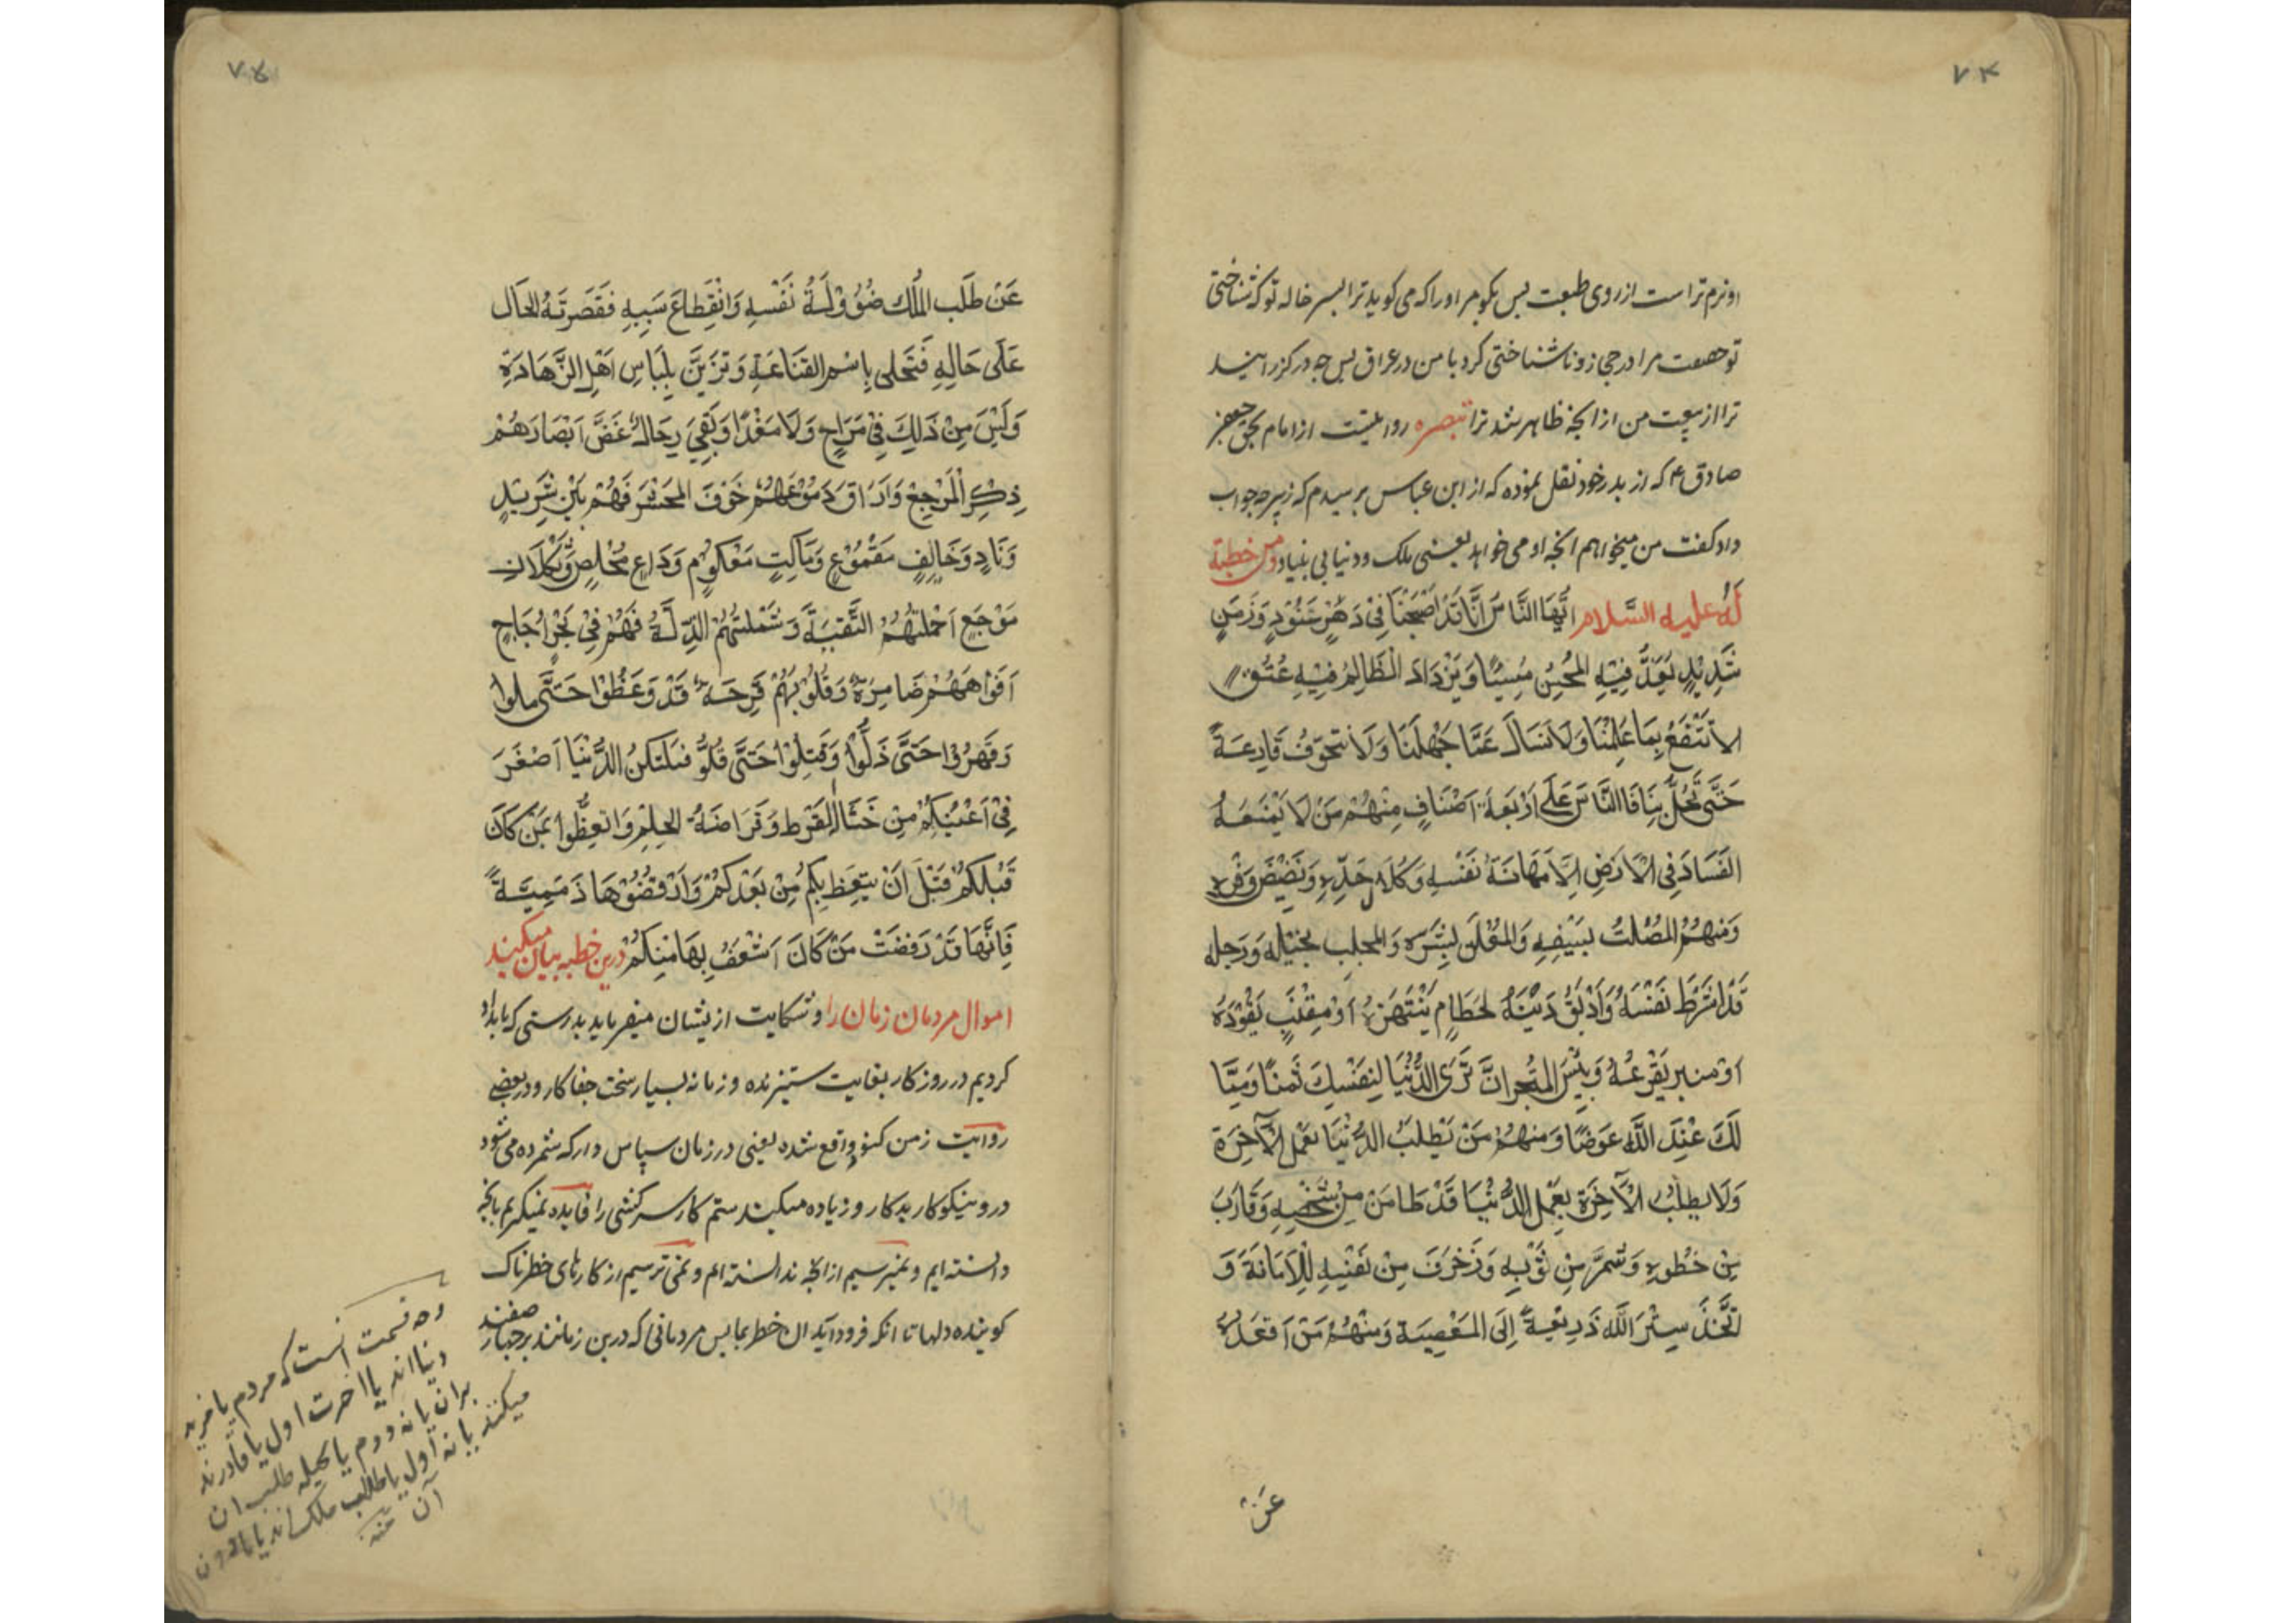 ۷۴
او نرم تراست از روی طبیعت پس بکو مر او را که می کوید ترا پسر خاله تو که شناختی
تو حصت مرا در حجاز و ناشناختی کرد با من در عراق پس چه در کزرانید
ترا از بیعت من از انچه ظاهر شد ترا تبصره روایتست از امام بحق جعفر
صادق ع که از پدر خود نقل نموده که از ابن عباس پرسیدم که زبیر چه جواب
داد کفت من میخواهم انچه او می خواهد یعنی ملک و دنیا بی بنیاد ومن خطبة
لَهُ علیه السَّلام اَیُّهَا النَّاسَ اَنَّا قَدْ اَصْبَحْنَا فِیْ دَهْرٍ عَنُوْدٍ وَزَمَنٍ
شَدِیْدٍ یُعَدُّ فِیْهِ المُحْسِنُ مُسِیْئًا وَیَزْدَادُ الْظَالِمُ فِیْهِ عُتُوّ
لاَ نَنْتَفِعُ بِمَا عَلِمْنَا وَلَا نَسْاَلُ عَمَّا جَهِلْنَا وَلَا نَتَخَوَّفُ قَارِعَةً
حَتَّی تَحُلَّ بِنَا فَاالنَّاسُ عَلَی اَرْبَعَةِ اَصْنَافٍ مِنْهُمْ مَنْ لَا یَمْنَعَهُ
الفَسَادَ فِی الْاَرَضِ اِلَّا مَهَانَةَ نَفْسِهِ وَکُلَالَ حَدِّهِ وَنَضِیْضَ وَفْرِهِ
وَمِنْهُمُ المُصْلِتُ بِسَیْفِهِ وَالمُعْلِنَ بِشَرِّه وَالمجلِب بِخَیْلِهِ وَرَجلِه
قَدْ اشْرَطَ نَفْسَهُ وَاَوْبَقَ دَیْنَهُ لِحُطَامٍ یَنْتَهِزُهُ اَوْ مِقْنَبٍ یَقُوْدَهُ
اَوْ منبر یَفْرَعُهُ وَبِئْسَ المتْجَرانَّ تَرَی الدُّنْیَا لِنَفْسِكَ ثَمَنًا وَمِمَّا
لَكَ عْنِدَ اللَّهِ عِوَضًا وَمِنهُمْ مَنْ یَطْلبُ الدُّنْیَا بِعَمَلِ الْآخِرَة
وَلَا یطلُبُ الْآخِرَةَ بِعَمَلِ الدُّنْیَا قَدْ طَامَنَ مِنْ شَخْصِهِ وَقَارَبَ
مِنْ خُطْوِهِ وَشَمَّرَ مِنْ ثَوْبِهِ وَزَخْرَفَ مِنْ نَفْسِهِ لِلْاَمَانَةَ وَ
اتَّخَذَ سِتْرَ اللَّهِ ذَرِیْعَةً اِلَی المَعْصِیَة وَمِنْهُمْ مَنْ اَقعَدَهُ
عَنْ
۷۵
عَنْ طَلَبِ المُلْك ضُؤُوْلَةُ نَفْسِهِ وَانْقِطَاعَ سَبَبِهِ فَقَصَرَتَهُ الحَال
عَلَی حَالِهِ فَتَحَلی بِاسْمِ القَنَاعَةِ وَتَزَیَّنَ بِلِبَاسِ اَهْلِ الزَّهَادَةِ
وَلَیْسَ مِنْ ذَلِكَ فِیْ مَرَاحٍ وَلَا مَغْدًا وَبَقِیَ رِجَالٌ غَضَّ اَبْصَارَهُمْ
ذِکْرِ الْمَرْجِعْ وَاَرَاقَ دَمُوْعَهُمْ خَوْفَ المَحْشَرَ فَهُمْ بَیْنَ شَرِیْدٍ
وَنَادٍ وَخَائِفٍ مَقْمُوْعٍ وَسَاکِتٍ مَعْکُوْمٍ وَدَاعٍ مُخْلِصٍ وَثَکْلَانٍ
مَوْجَعٍ اَخْمَلَتْهُمْ التَّقِیَّةَ وَشَمَلَتْهُمْ الذِّلَّةُ فَهُمْ فِیْ بَحْرٍ اُجَاجٍ
اَفَوْاهَهُمْ ضَامِزَة وَقُلُوْبَهُمْ قَرِحَةٌ قَدْ وَعَظُوْا حَتَّی ملوا
وَقَهَرُوْا حَتَّی ذَلُّوْا وَقُتِلُوْا حَتَّی قُلُّو فَلتَکنُ الدُّنْیَا اَصْغَرَ
فِیْ اَعْیُنِکُمْ مِنْ حُثَالَةِ القَرَظ وَقَرَاضَةُ الجَلَمِ وَاتَعِظُّوا بِمَنْ کَانَ
قَبْلَکُمْ قَبْلَ اَنْ یتَعِظَ بِکُم مِنْ بَعْدَکُمْ وَارْفُضُوْهَا ذَمِیَمَةً
فَاِنَّهَا قَدْ رَفَضَتْ مَنْ کَانَ اَشْغَفَ بِهَا مِنْکُمْ درین خطبه بیان میکنید
اموال مردمان زمان را و شکایت از یشان میفرماید بدرستی که بامداد
کردیم در روز کار بغایت ستیزنده و زمانه بسیار سخت جفا کار و در بعضی
روایت زمن کنود واقع شده یعنی در زمان سپاس دار که شمرده می شود
در و نیکو کار بد کار و زیاده میکند ستم کار سرکشی را فایده نمیکریم بانچه
دانسته ایم و نمیپرسیم از انچه ندانسته ایم و نمی ترسیم از کارهای خطرناک
کوبنده دلها تا انکه فرود آید ان خطر بما پس مردمانی که درین زمانند برچهار صفند
وجه قسمت انست که مردم یا مرید
دنیا اند یا اخرت اول یا قادرند
بران یا نه دوم یا بحیله طلب ان
میکنند یا نه اول یا طالب ملک اند یا
آن منه